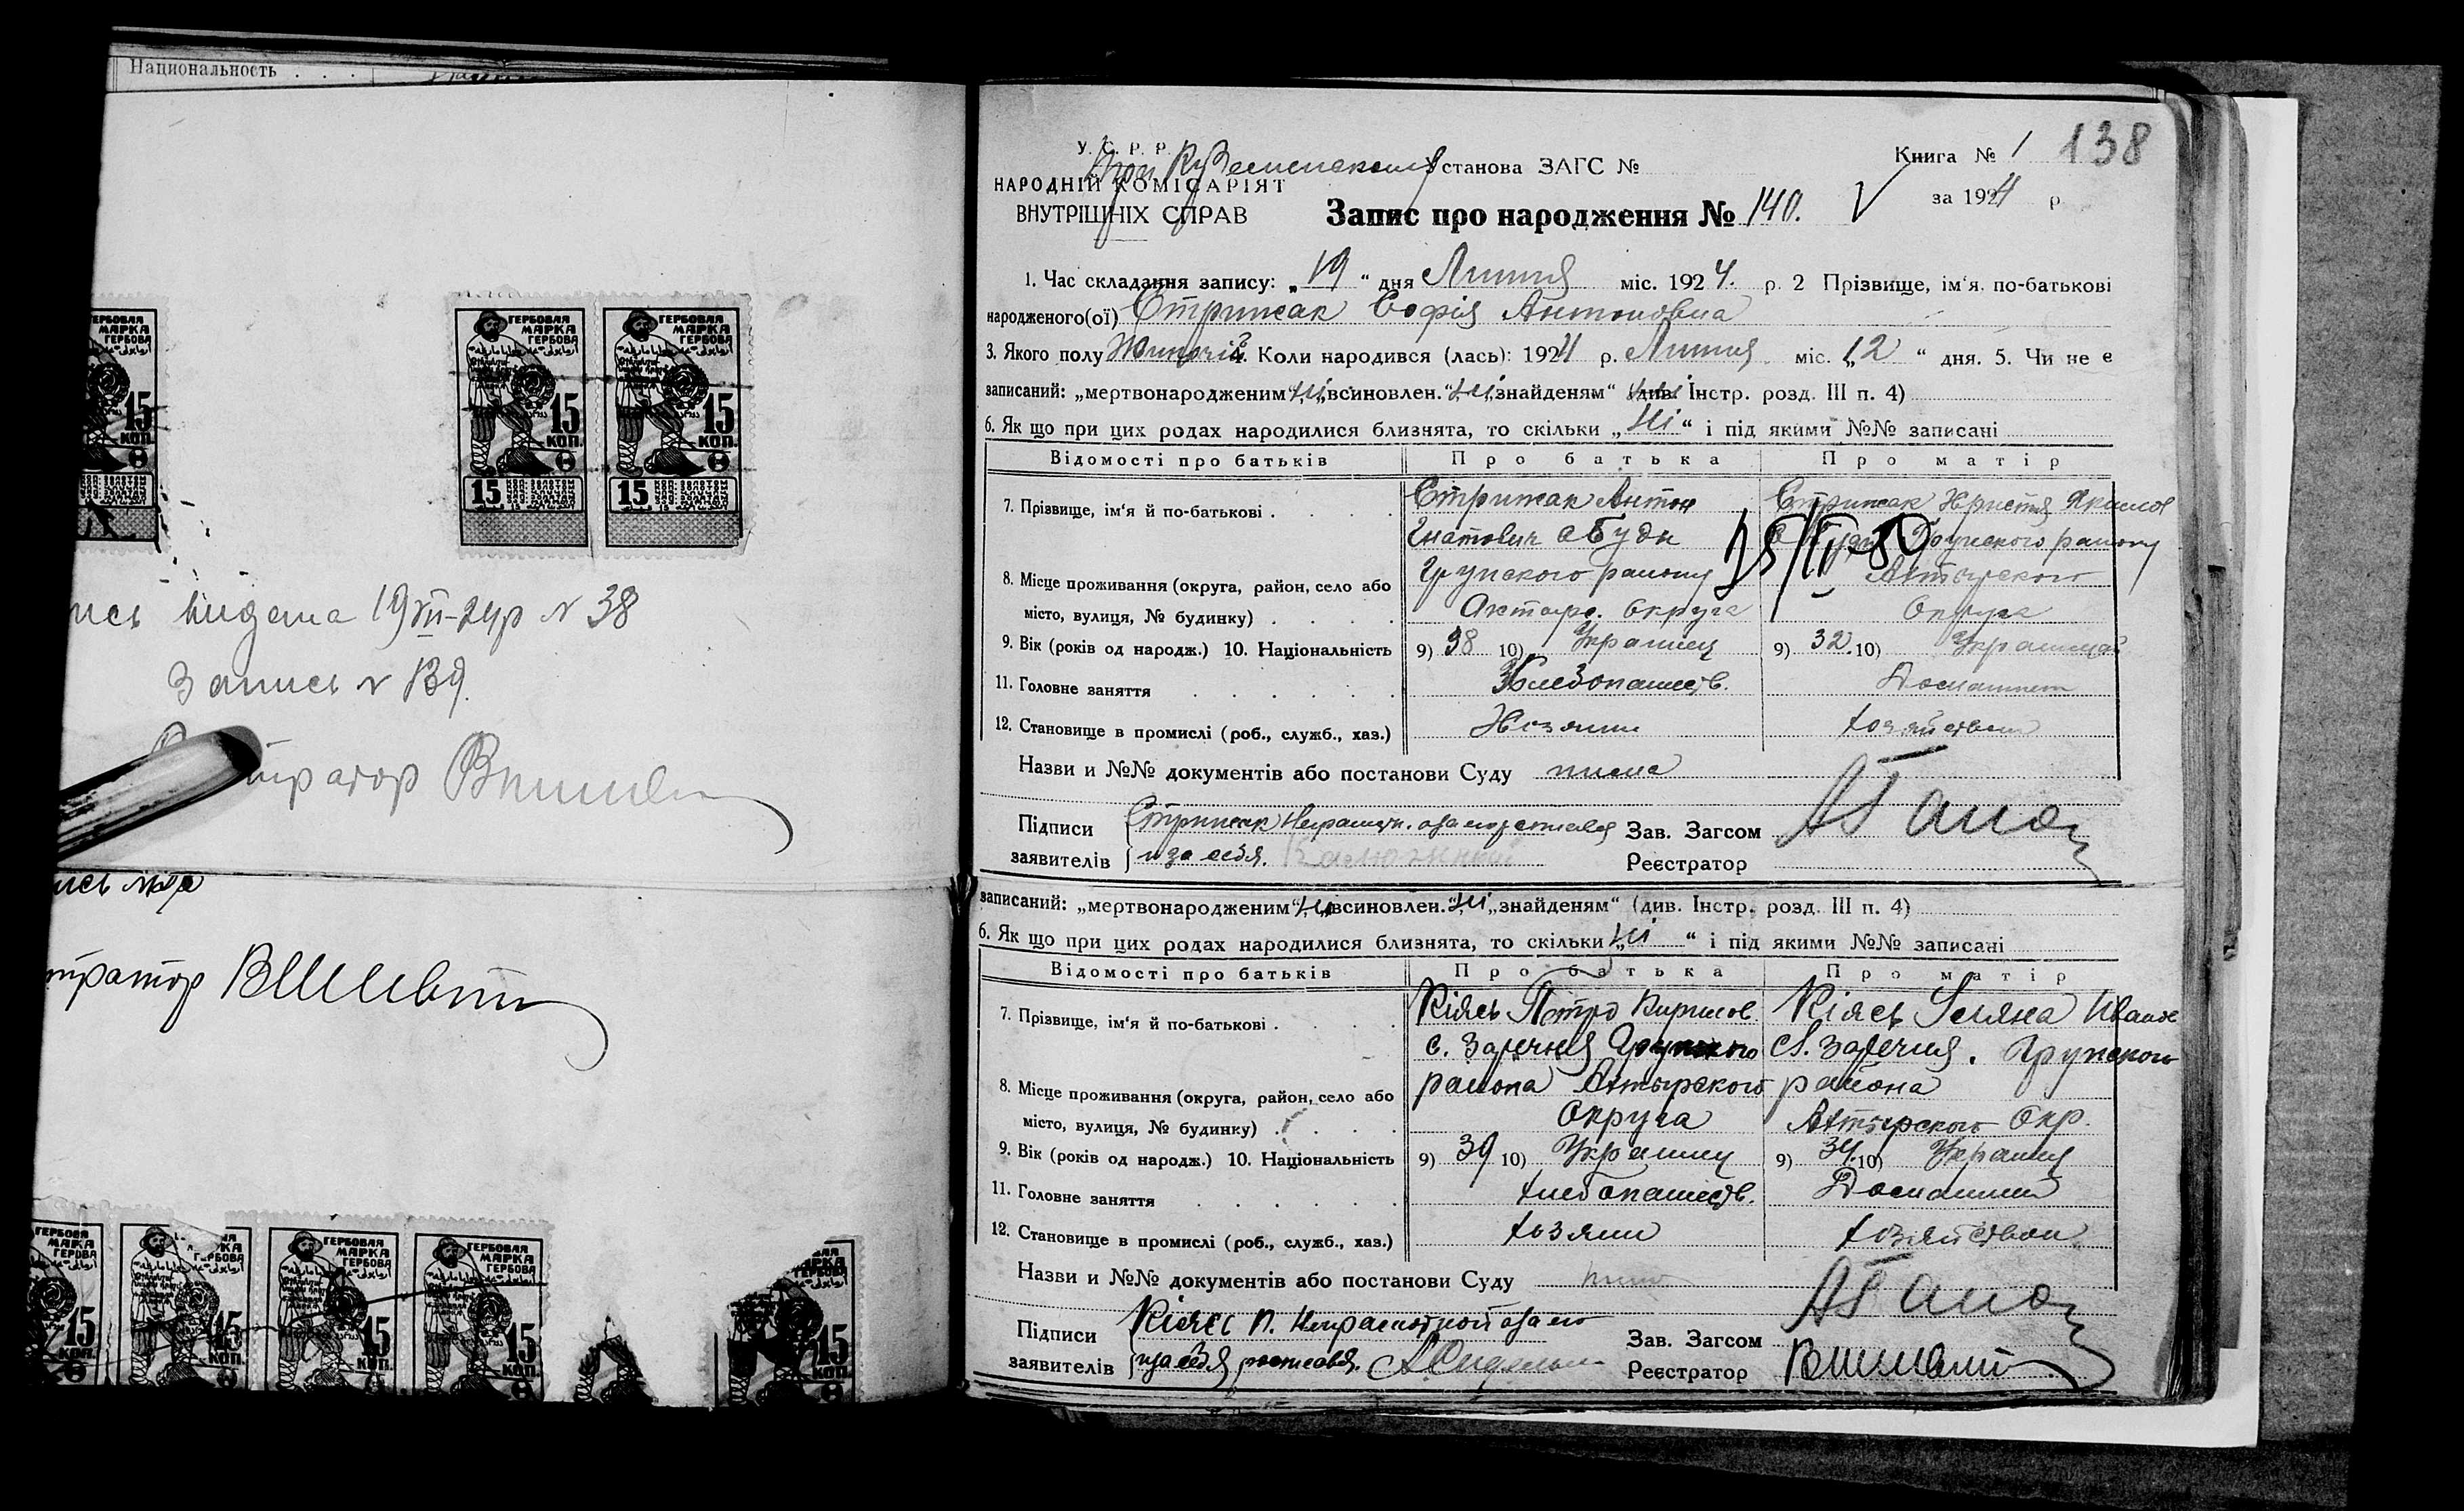 Национальность . . .
ГЕРБОВАЯ
МАРКА
ГЕРБОВА
15
КОП.
ГЕРБОВАЯ
МАРКА
ГЕРБОВА
15
КОП.
15
ГЕРБОВАЯ
МАРКА
ГЕРБОВА
15
КОП.
15
видана 19 VII-24р N 38
Запись N 139.
ГЕРБОВАЯ
МАРКА
15
КОП.
15
КОП.
ГЕРБОВАЯ
МАРКА
ГЕРБОВА
15
КОП.
ГЕРБОВАЯ
МАРКА
ГЕРБОВА
15
КОП.
15
КОП.
У. С. Р. Р.
НАРОДНІЙ КОМІСАРІЯТ
ВНУТРІШНІХ СПРАВ
Установа ЗАГС №
Книга № 1 138
за 1924 р
Запис про народження № 140.
1. Час складання запису: „19“ дня Липня міс. 1924. р. 2 Прізвище, ім‘я. по-батькові
народженого(ої) Стрижак Софія Антоновна
3. Якого полу 4. Коли народився (лась): 1924 р. Липня міс. „12“ дня. 5. Чи не є
записаний: „мертвонародженим“ ні „всиновлен.“ ні „знайденям“ (див. Інстр. розд. III п. 4)
6. Як що при цих родах народилися близнята, то скільки „ні“ і під якими №№ записані
Відомості про батьків Про батька Про матір
7. Прізвище, ім‘я й по-батькові . . . . Стрижак Антон Стрижак Христя Якимов
Гнатович с Буди Грунского району
8. Місце проживання (округа, район, село або Грунского району Ахтырского
місто, вулиця, № будинку) . . . . Ахтыр. Округа Округа
9. Вік (років од народж.) 10. Національність 9) 38 10) Украинец 9) 32. 10)
11. Головне заняття . . . . . . Хлебопашеств. Домашнем
12. Становище в промислі (роб., служб., хаз.) Хозяин хозяйством
Назви и №№ документів або постанови Суду
Підписи Стрижак Неграмотн. Зав. Загсом
заявителів и за себя. Реєстратор
записаний: „мертвонародженим“ ні „всиновлен.“ ні „знайденям“ (див. Інстр. розд. III п. 4)
6. Як що при цих родах народилися близнята, то скільки „ні“ і під якими №№ записані
Відомості про батьків Про батька Про матір
7. Прізвище, ім‘я й по-батькові . . . . Кіясь Петро Кирилов. Кіясь Уляна Иванов
с. Заречня Грунского С. Заречня. Грунского
8. Місце проживання (округа, район, село або района Ахтырского района
місто, вулиця, № будинку) . . . . Округа Ахтырского Окр.
9. Вік (років од народж.) 10. Національність 9) 39 10) Украинец 9) 34. 10) Украинц
11. Головне заняття . . . . . . хлебопашеств. Домашним
12. Становище в промислі (роб., служб., хаз.) хозяин хозяйством
Назви и №№ документів або постанови Суду
Підписи Кіясь П. Неграмотной Зав. Загсом
заявителів и за себя росписався. Реєстратор